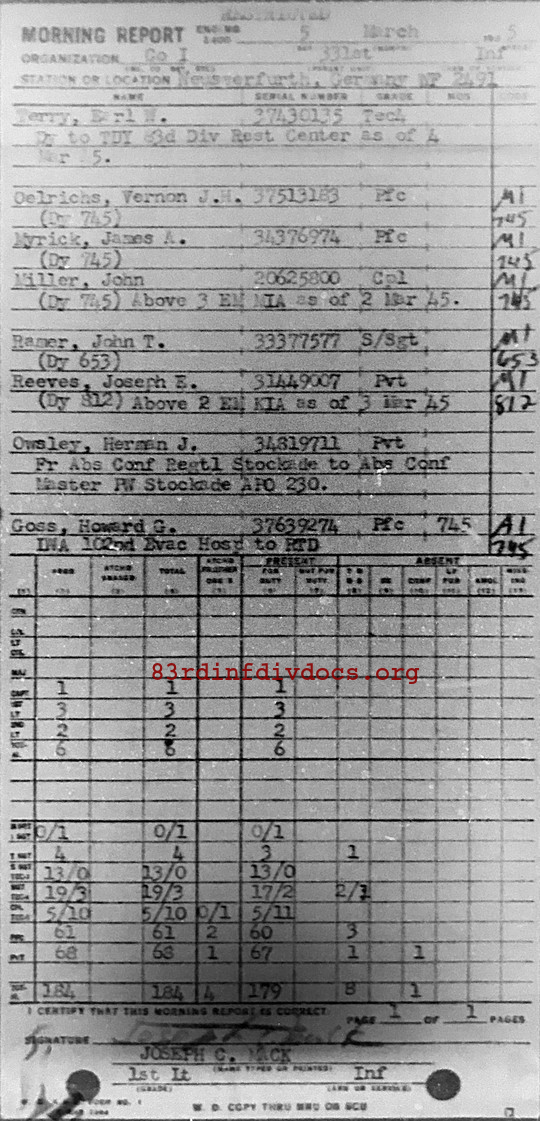 RESTRICTED
MORNING REPORT ENDING 2400 5 March 5
ORGANIZATION Co I 331st Inf
STATION OR LOCATION Neusserfurth, Germany WF 2491
NAME SERIAL NUMBER GRADE MOS CODE
Terry, Earl W. 37430135 Tec4
Dy to TDY 83d Div Rest Center as of 4
Mar 45.
Oelrichs, Vernon J.H. 37513183 Pfc MI
(Dy 745) 745
Myrick, James A. 34376974 Pfc MI
(Dy 745) 745
Miller, John 20625800 Cpl MI
(Dy 745) Above 3 EM MIA as of 2 Mar 45. 745
Ramer, John T. 33377577 S/Sgt MI
(Dy 653) 653
Reeves, Joseph E. 31449007 Pvt MI
(Dy 812) Above 2 EM KIA as of 3 Mar 45 812
Owsley, Herman J. 34819711 Pvt
Fr Abs Conf Regtl Stockade to Abs Conf
Master PW Stockade APO 230.
Goss, Howard G. 37639274 Pfc 745 AI
IWA 102nd Evac Hosp to RTD 745
PRESENT ABSENT
TOTAL FOR DUTY NOT FOR DUTY SK CONF AWOL MISSING
COL
LT COL
MAJ
83rdinfdivdocs.org
CAPT 1 1 1
1ST LT 3 3 3
2ND LT 2 2 2
TOTAL 6 6 6
0/1 0/1 0/1
T SGT 4 4 3 1
13/0 13/0 13/0
19/3 19/3 17/2 2/1
5/10 5/10 0/1 5/11
PFC 61 61 2 60 3
PVT 68 68 1 67 1 1
TOTAL 184 184 4 179 8 1
I CERTIFY THAT THIS MORNING REPORT IS CORRECT PAGE 1 OF 1 PAGES
SIGNATURE
JOSEPH C. MACK
(NAME TYPED OR PRINTED)
1st Lt Inf
(GRADE) (ARM OR SERVICE)
FORM NO. 1
W. D. COPY THRU MRU OR SCU